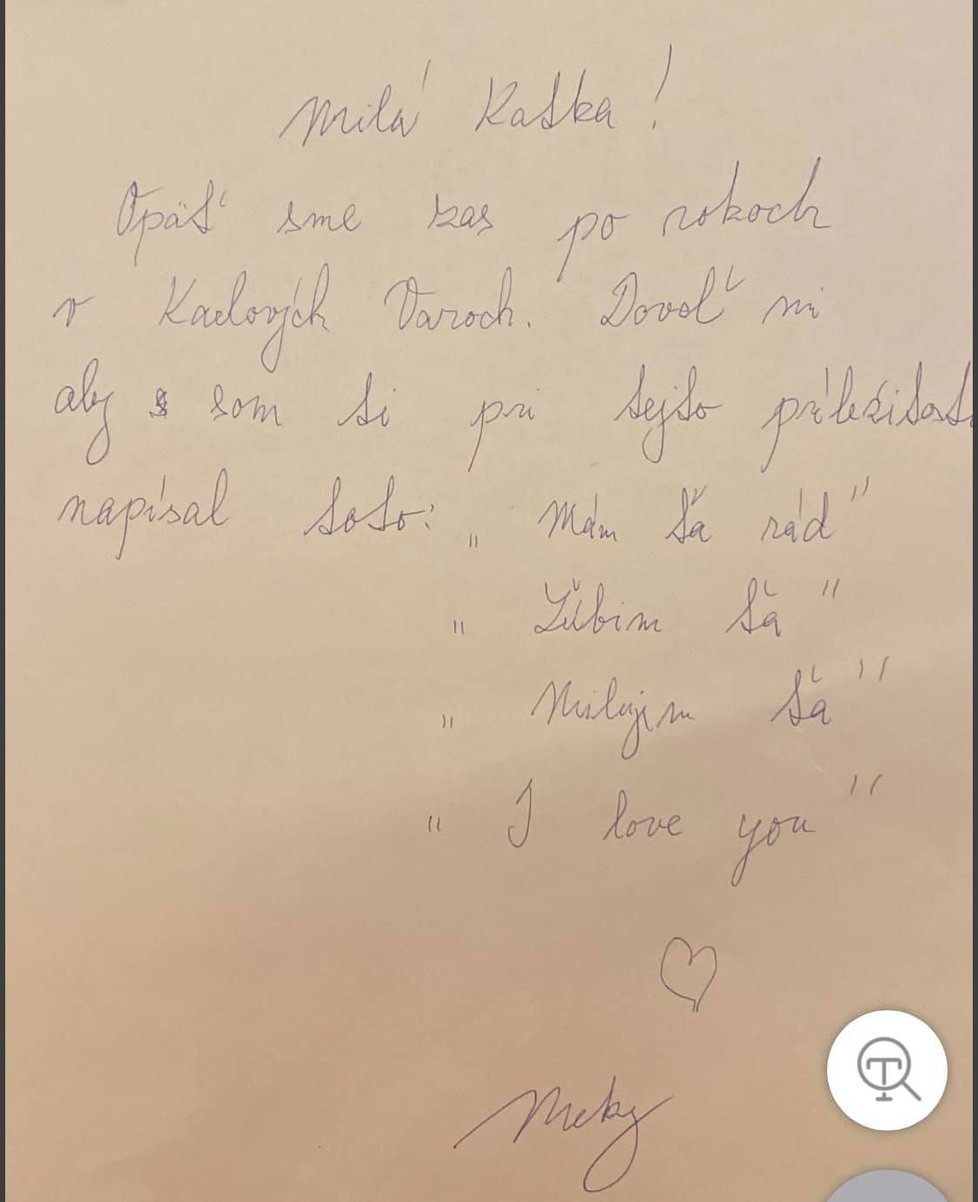 Milá Katka!
Opäť sme zas po rokoch
v Karlových Varoch. Dovoľ mi
aby som ti pri tejto príležitosti
napísal toto: „Mám ťa rád"
„Ľúbim ťa"
„Milujem ťa"
„I love you"
Meky